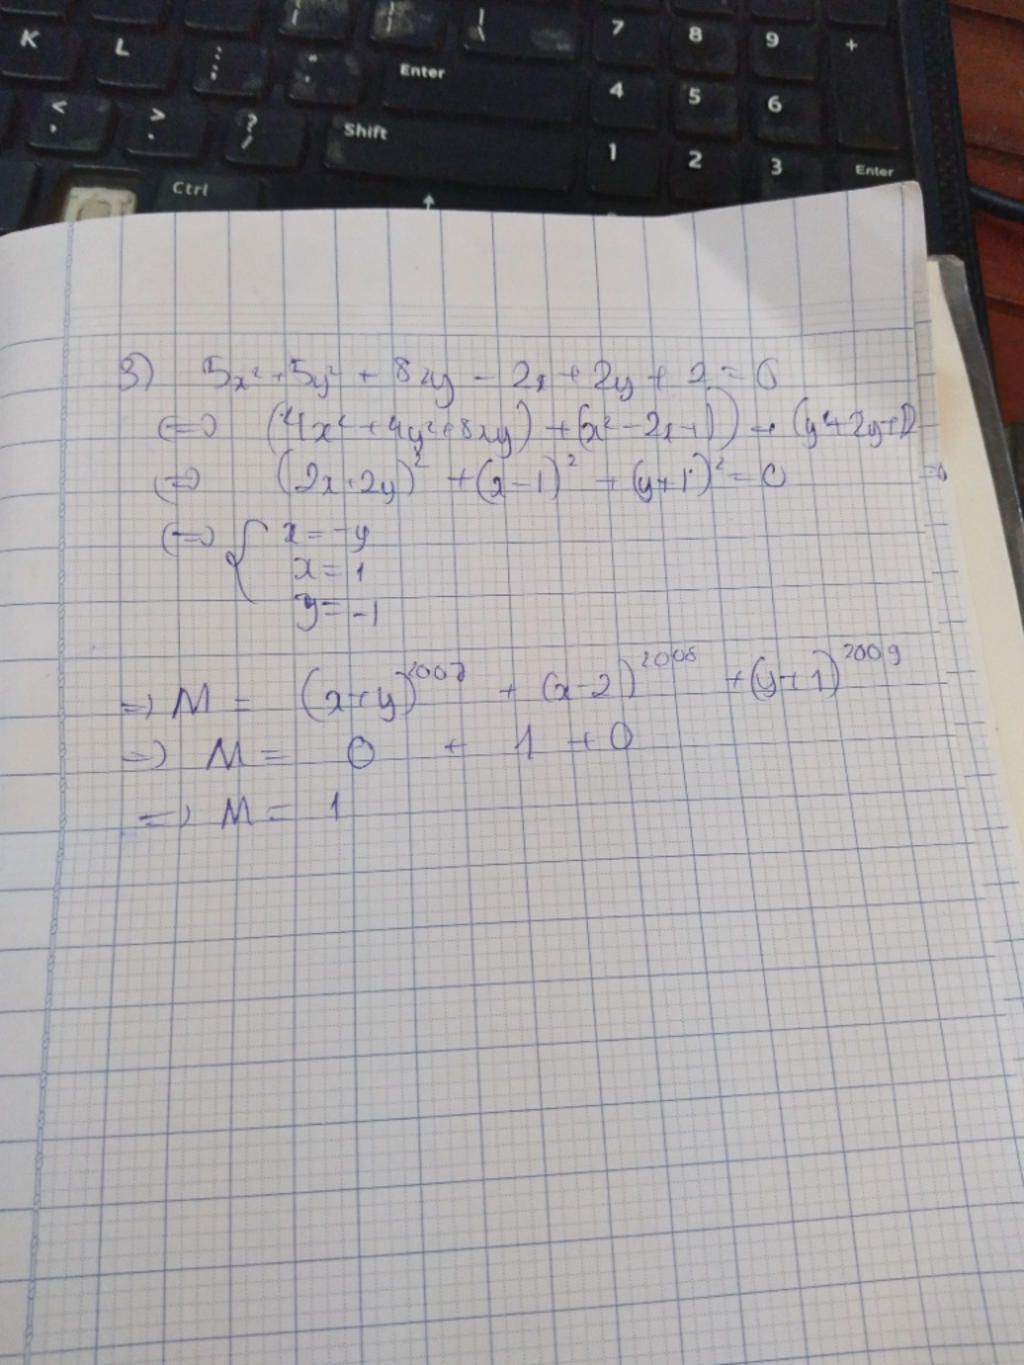 K L : ; " ' { [ } ] | \ Enter 7 8 9 +
< , > . ? / Shift 4 5 6
Ctrl 1 2 3 Enter
3) 5x² + 5y² + 8xy - 2x + 2y + 2 = 0
<=> (4x² + 4y² + 8xy) + (x² - 2x + 1) + (y² + 2y + 1) = 0
<=> (2x + 2y)² + (x - 1)² + (y + 1)² = 0
<=> { x = -y
x = 1
y = -1
=> M = (x + y)²⁰⁰⁷ + (x - 2)²⁰⁰⁸ + (y + 1)²⁰⁰⁹
=> M = 0 + 1 + 0
=> M = 1